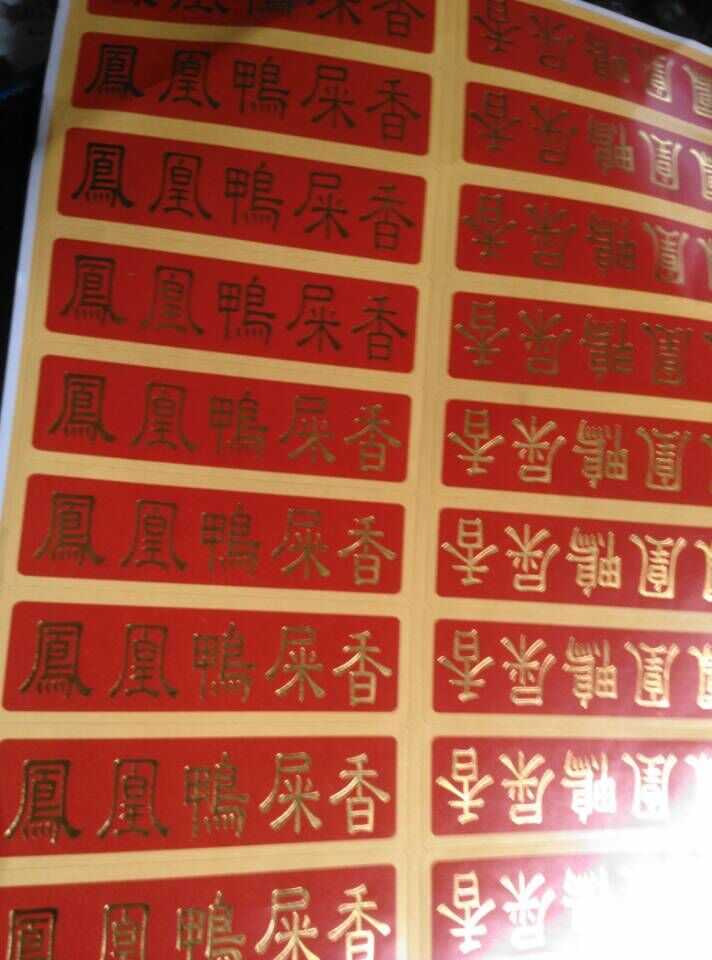 屎香
鳳凰鴨屎香
鳳凰鴨屎香
鳳凰鴨屎香
鳳凰鴨屎香
鳳凰鴨屎香
鳳凰鴨屎香
鳳凰鴨屎香
鳳凰鴨屎香
鳳凰鴨屎香
鳳凰鴨屎香
凰鴨屎香
凰鴨屎香
凰鴨屎香
凰鴨屎香
凰鴨屎香
凰鴨屎香
屎香